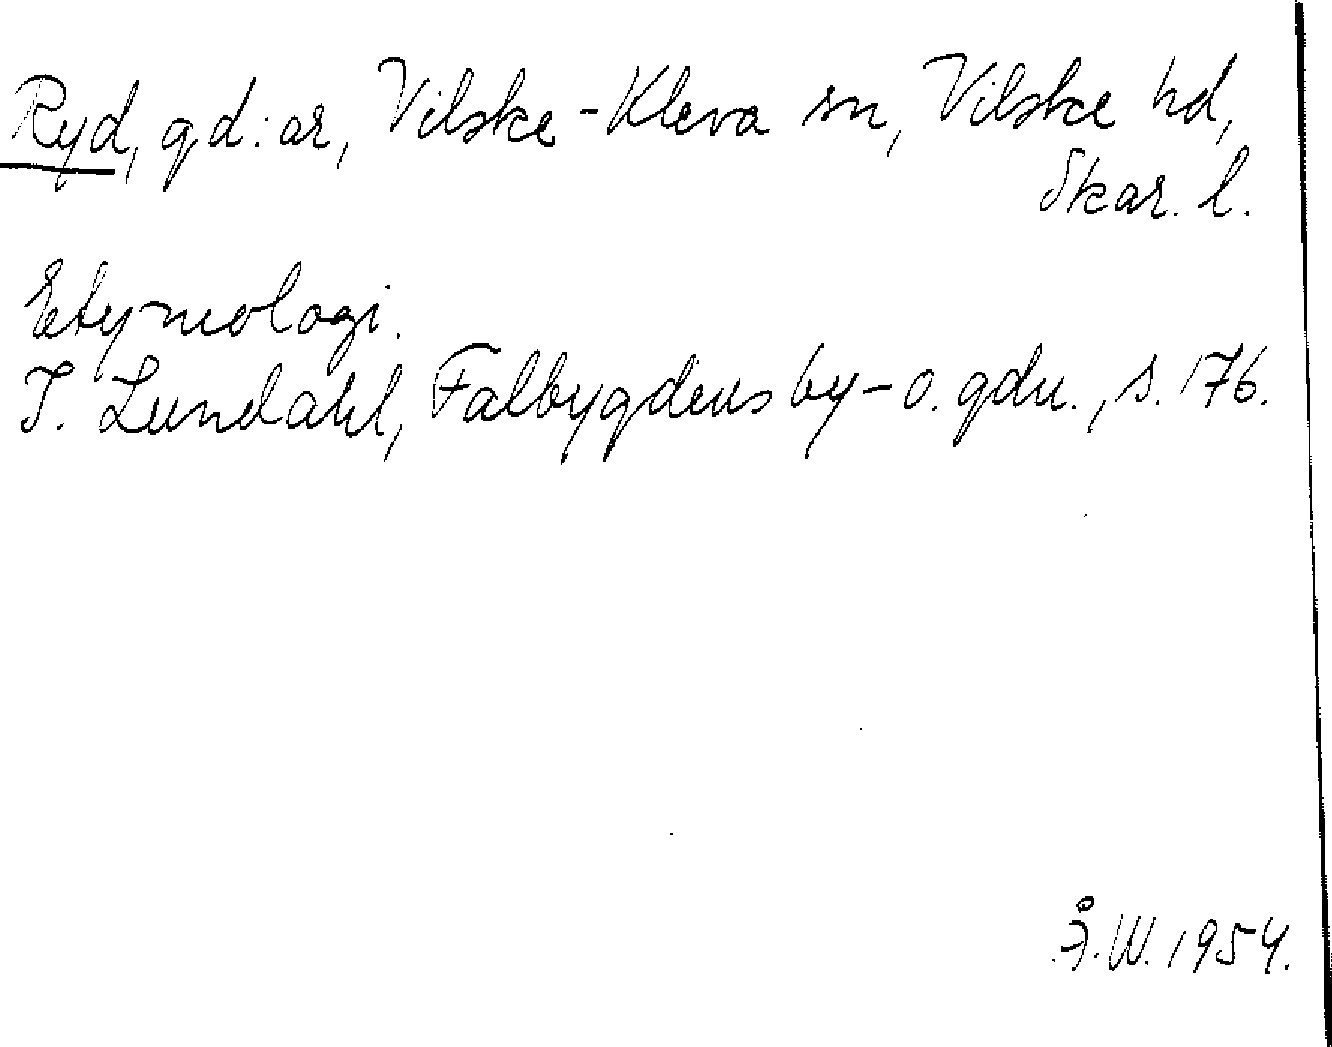 Ryd, gd:ar, Vilske-Kleva sn, Vilske hd,
Skar. l.
Etymologi.
I. Lundahl, Falbygdens by- o. gdn., s. 176.
Å.W. 1954.